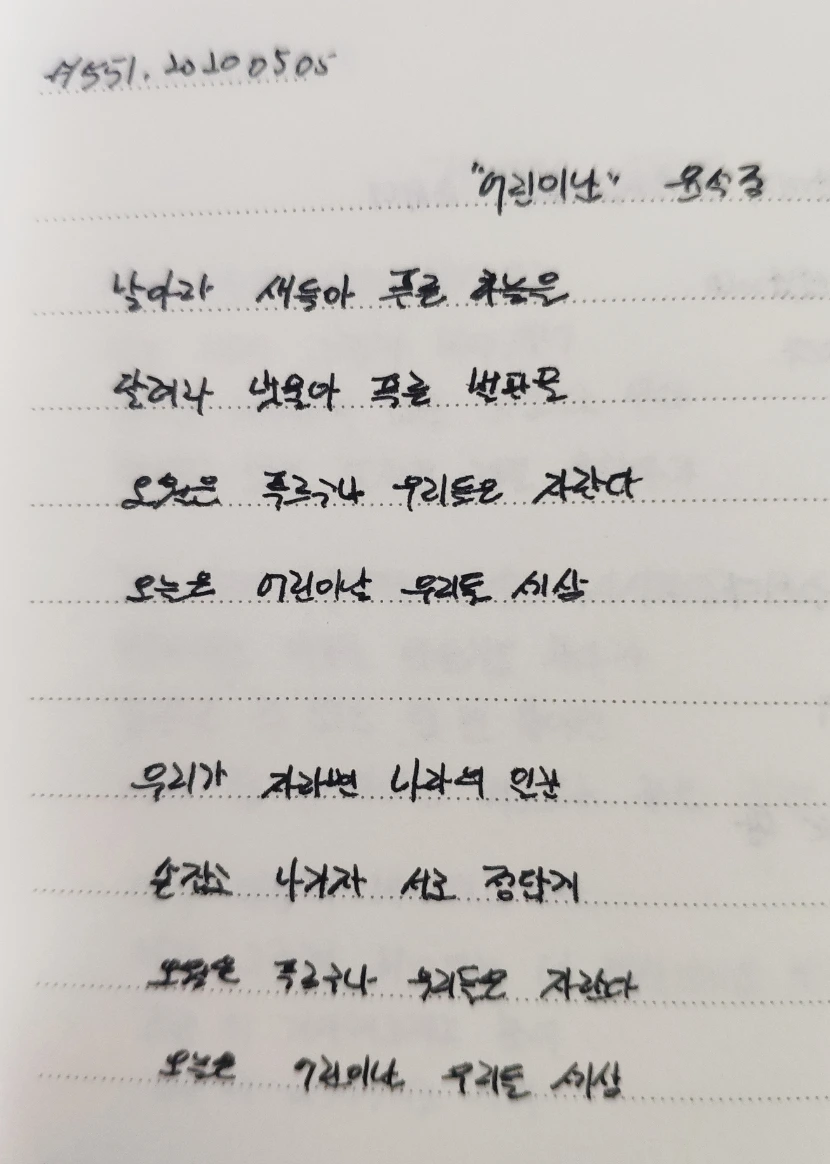 #551. 20200505
"어린이날" 윤석중
날아라 새들아 푸른 하늘을
달려라 냇물아 푸른 벌판을
오월은 푸르구나 우리들은 자란다
오늘은 어린이날 우리들 세상
우리가 자라면 나라의 일꾼
손잡고 나가자 서로 정답게
오월은 푸르구나 우리들은 자란다
오늘은 어린이날 우리들 세상